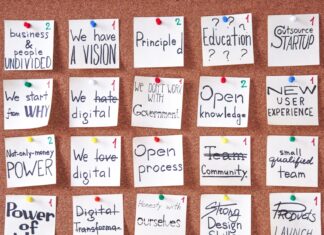 2
business
& people
UNDIVIDED
1
We have
A VISION
2
Principled
? ? ?
Education
? ? ?
1
Outsource
STARTUP
1
We start
from WHY?
1
We hate
digital
1
WE DON'T WORK
WITH
Governments
2
Open
knowledge
1
NEW
USER
EXPERIENCE
2
Not-only-money
POWER
1
We love
digital
1
Open
process
1
Team
Community
1
small
qualified
team
1
Power
of
1
Digital
1
Honesty with
ourselves
1
Strong
Design
1
LAUNCH